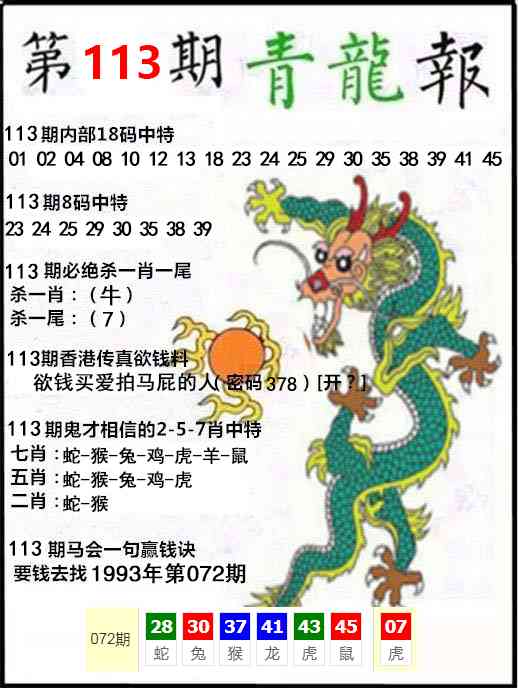 第113期青龍報
113期内部18码中特
01 02 04 08 10 12 13 18 23 24 25 29 30 35 38 39 41 45
113期8码中特
23 24 25 29 30 35 38 39
113 期必绝杀一肖一尾
杀一肖：（牛）
杀一尾：（7）
113期香港传真欲钱料
欲钱买爱拍马屁的人（密码378）[开？]
113期鬼才相信的2-5-7肖中特
七肖：蛇-猴-兔-鸡-虎-羊-鼠
五肖：蛇-猴-兔-鸡-虎
二肖：蛇-猴
113 期马会一句赢钱诀
要钱去找1993年第072期
072期 28 30 37 41 43 45 07
蛇 兔 猴 龙 虎 鼠 虎